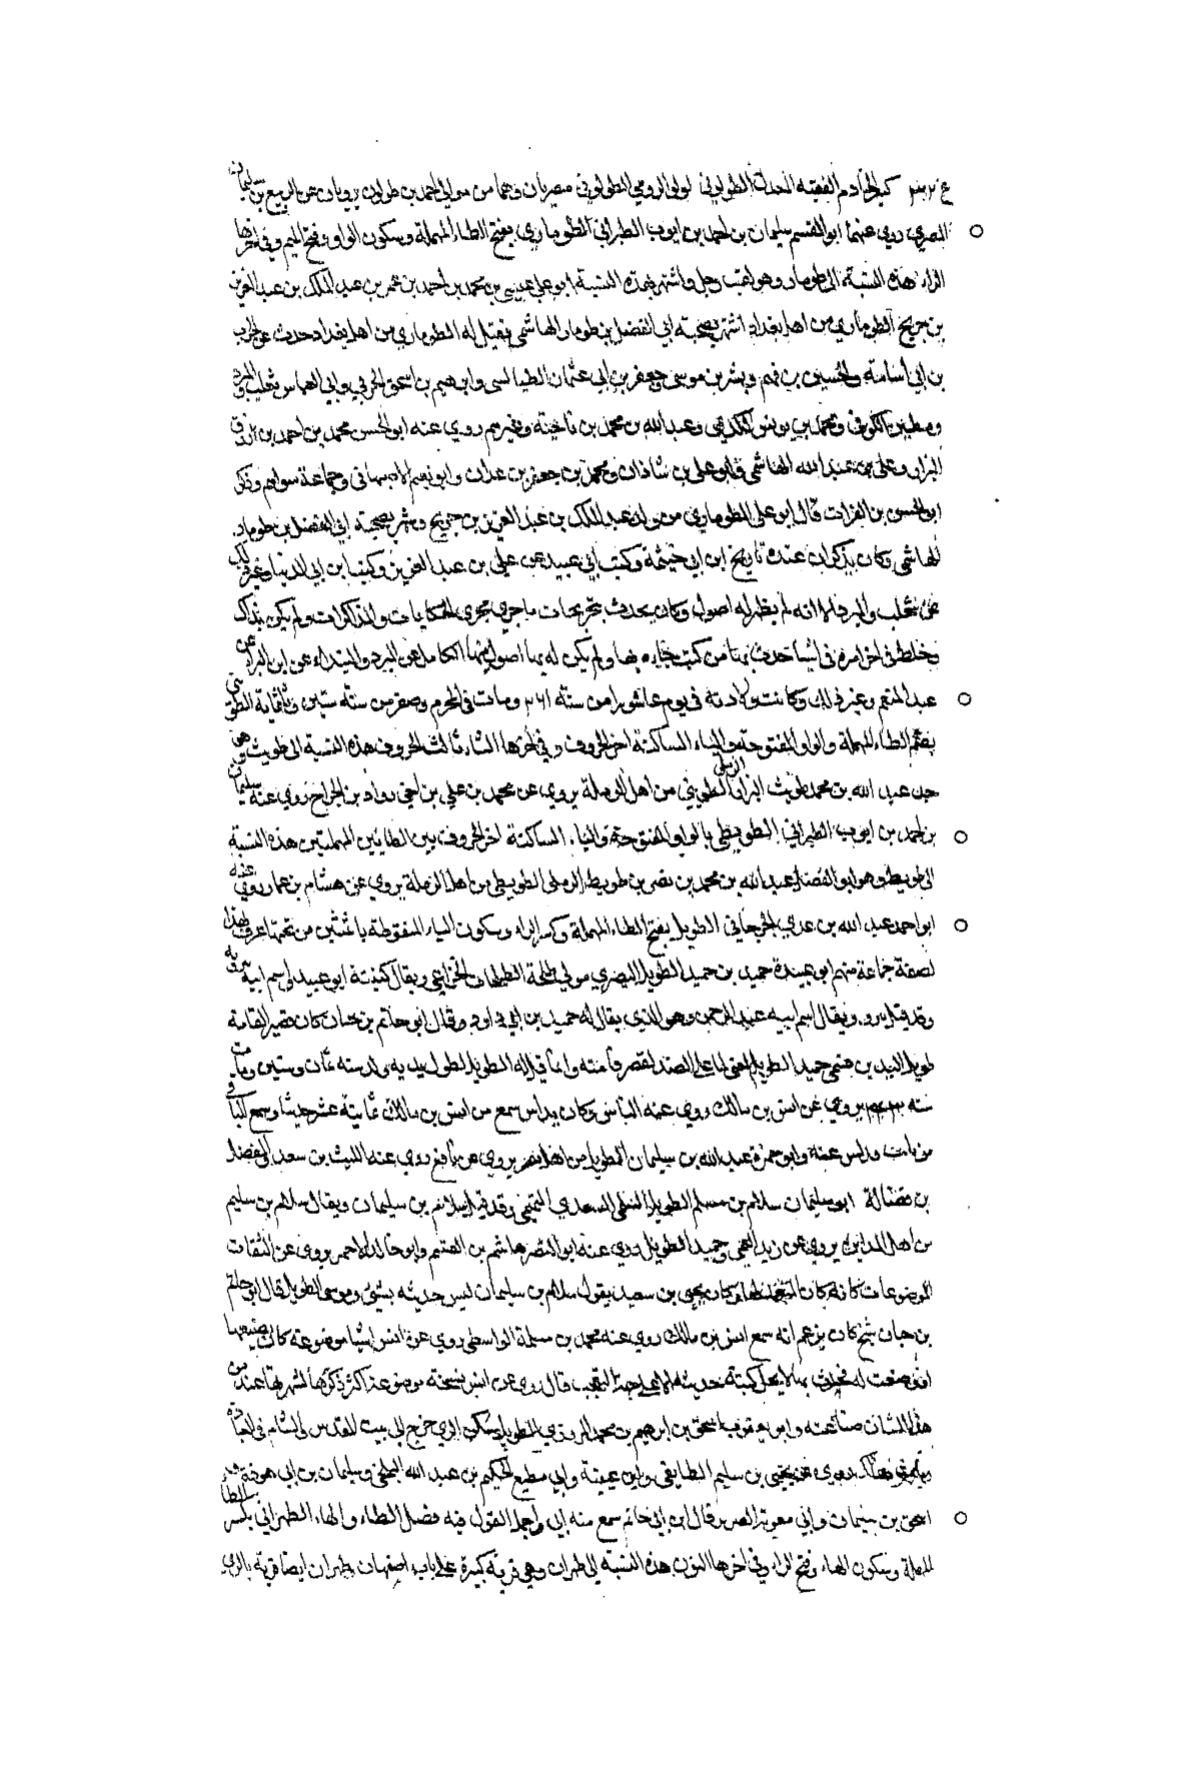 كبير الخادم الفقيه المحدث الطولوني لولو الرومي الطولوني مصريان وهما من موالي احمد بن طولون يرويان عن الربيع بن سليمان
المصري روى عنهما ابو القسم سليمان بن احمد بن ايوب الطبراني الطوماري بفتح الطاء المهملة وسكون الواو وفتح الميم وفي اخرها
الراء هذه النسبة الى طومار وهو لقب رجل واشتهر بهذه النسبة ابو علي عيسى بن محمد بن احمد بن عمر بن عبد الملك بن عبد العزيز
بن جريج الطوماري من اهل بغداد اشتهر بصحبة ابي الفضل بن طومار الهاشمي فقيل له الطوماري من اهل بغداد حدث عن الحرث
بن ابي اسامة والحسين بن فهم وبشر بن موسى وجعفر بن ابي عثمان الطيالسي وابرهيم بن اسحق الحربي وابي العباس ثعلب والمبرد
ومطين الكوفي ومحمد بن يونس الكديمي وعبد الله بن محمد بن ناجية وغيرهم روى عنه ابو الحسن محمد بن احمد بن رزق
البزاز وعلي بن عبد الله الهاشمي وابو علي بن شاذان ومحمد بن جعفر بن علان وابو نعيم الاصبهاني وجماعة سواهم وذكر
ابو الحسن بن الفرات قال ابو علي الطوماري من ولد عبد الملك بن عبد العزيز بن جريج وشهر بصحبة ابي الفضل بن طومار
الهاشمي وكان يذكر ان عنده تاريخ ابن ابي خيثمة وكتب ابي عبيد عن علي بن عبد العزيز وكتب ابن ابي الدنيا وغير ذلك
عن ثعلب والمبرد الا انه لم يظهر له اصول وكان يحدث بتخريجات ما جرى مجرى الحكايات والمذاكرات ولم يكن بذاك
وخلط في اخر امره في اشيا حدث بها من كتب جاوه بها ولم يكن له بها اصول منها الكامل عن المبرد والمبتداء عن ابن البراء عن
عبد المنعم وغير ذلك وكانت ولادته في يوم عاشورا من سنة ٢٦١ ومات في المحرم وصفر من سنة ستين وثلثماية الطويثي
بضم الطاء المهملة والواو المفتوحة والياء الساكنة اخر الحروف وفي اخرها الثاء ثالث الحروف هذه النسبة الى طويث وهي
جد عبد الله بن محمد طويث البزاز الرملي الطويثي من اهل الرملة يروي عن محمد بن علي بن اخي رواد بن الجراح روى عنه سليمان
بن احمد بن ايوب الطبراني الطويطي بالواو المفتوحة والياء الساكنة اخر الحروف بين الطائين المهملتين هذه النسبة
الى طويط وهو ابو الفضل عبد الله بن محمد بن نصر بن طويط الرملي الطويطي من اهل الرملة يروي عن هشام بن عمار روى عنه
ابو احمد عبد الله بن عدي الجرجاني الطويل بفتح الطاء المهملة وكسر الراء وسكون الياء المنقوطة باثنتين من تحتها عرف بهذا
الصفة جماعة منهم ابو عبيدة حميد بن حميد الطويل البصري مولى طلحة الطلحات الخزاعي ويقال كنيته ابو عبيد واسم ابيه تيرويه
وقد قيل تيرو ويقال اسم ابيه عبد الرحمن وهو الذي يقال له حميد بن ابي داود وقال ابو حاتم بن حبان كان قصير القامة
طويل اليدين حميد الطويل على الضد لقصر قامته وانما قيل له الطويل لطول يديه ولد سنة ثمان وستين ومات في
سنة ١٤٣ يروي عن انس بن مالك روى عنه الناس وكان يدلس سمع من انس بن مالك ثمانية عشر حديثا وسمع الباقي
من ثابت ودلس عنه وابو حمزة عبد الله بن سليمان الطويل من اهل مصر يروي عن نافع روى عنه الليث بن سعد والمفضل
بن فضالة ابو سليمان سلام بن مسلم الطويل السعدي التميمي وقد قيل سلام بن سليمان ويقال سلام بن سليم
من اهل المداين يروي عن زيد العمي وحميد الطويل روى عنه ابو النضر هاشم بن القسم وابو خالد الاحمر يروي عن الثقات
الموضوعات كانه كان المتعمد لها وكان يحيى بن سعيد يقول سلام بن سليمان ليس حديثه بشيء وموسى الطويل قال ابو حاتم
بن حبان شيخ كان يزعم انه سمع انس بن مالك روى عنه محمد بن مسلمة الواسطي روى عن انس اشيا موضوعة كان يصنعها
او وضعت له فحدث بها لا يحل كتبة حديثه الا على جهة التعجب قال روى عن انس نسخة موضوعة اكثر ذكرها لشهرتها عند من
هذا الشان صناعته وابو يعقوب اسحق بن ابرهيم بن محمد المروزي الطويل سكن الري خرج الى بيت المقدس والشام في العبادة
ومات هناك روى عن يحيى بن سليم الطايفي وابن عيينة وابي مطيع الحكيم بن عبد الله البلخي وسليمان بن ابي هوذة
اسحق بن سليمان وابي معوية الضرير قال ابن ابي حاتم سمع منه ابي واجمل القول فيه فصل الطاء والهاء الطهراني بكسر الطاء
المهملة وسكون الهاء وفتح الراء وفي اخرها النون هذه النسبة الى طهران وهي قرية كبيرة على باب اصفهان وطهران ايضا قرية بالري